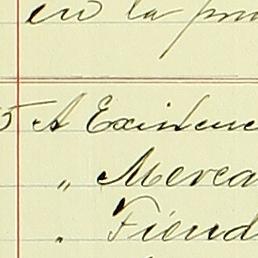 en la pro
5 A Existenc
" Merca
" Tiend